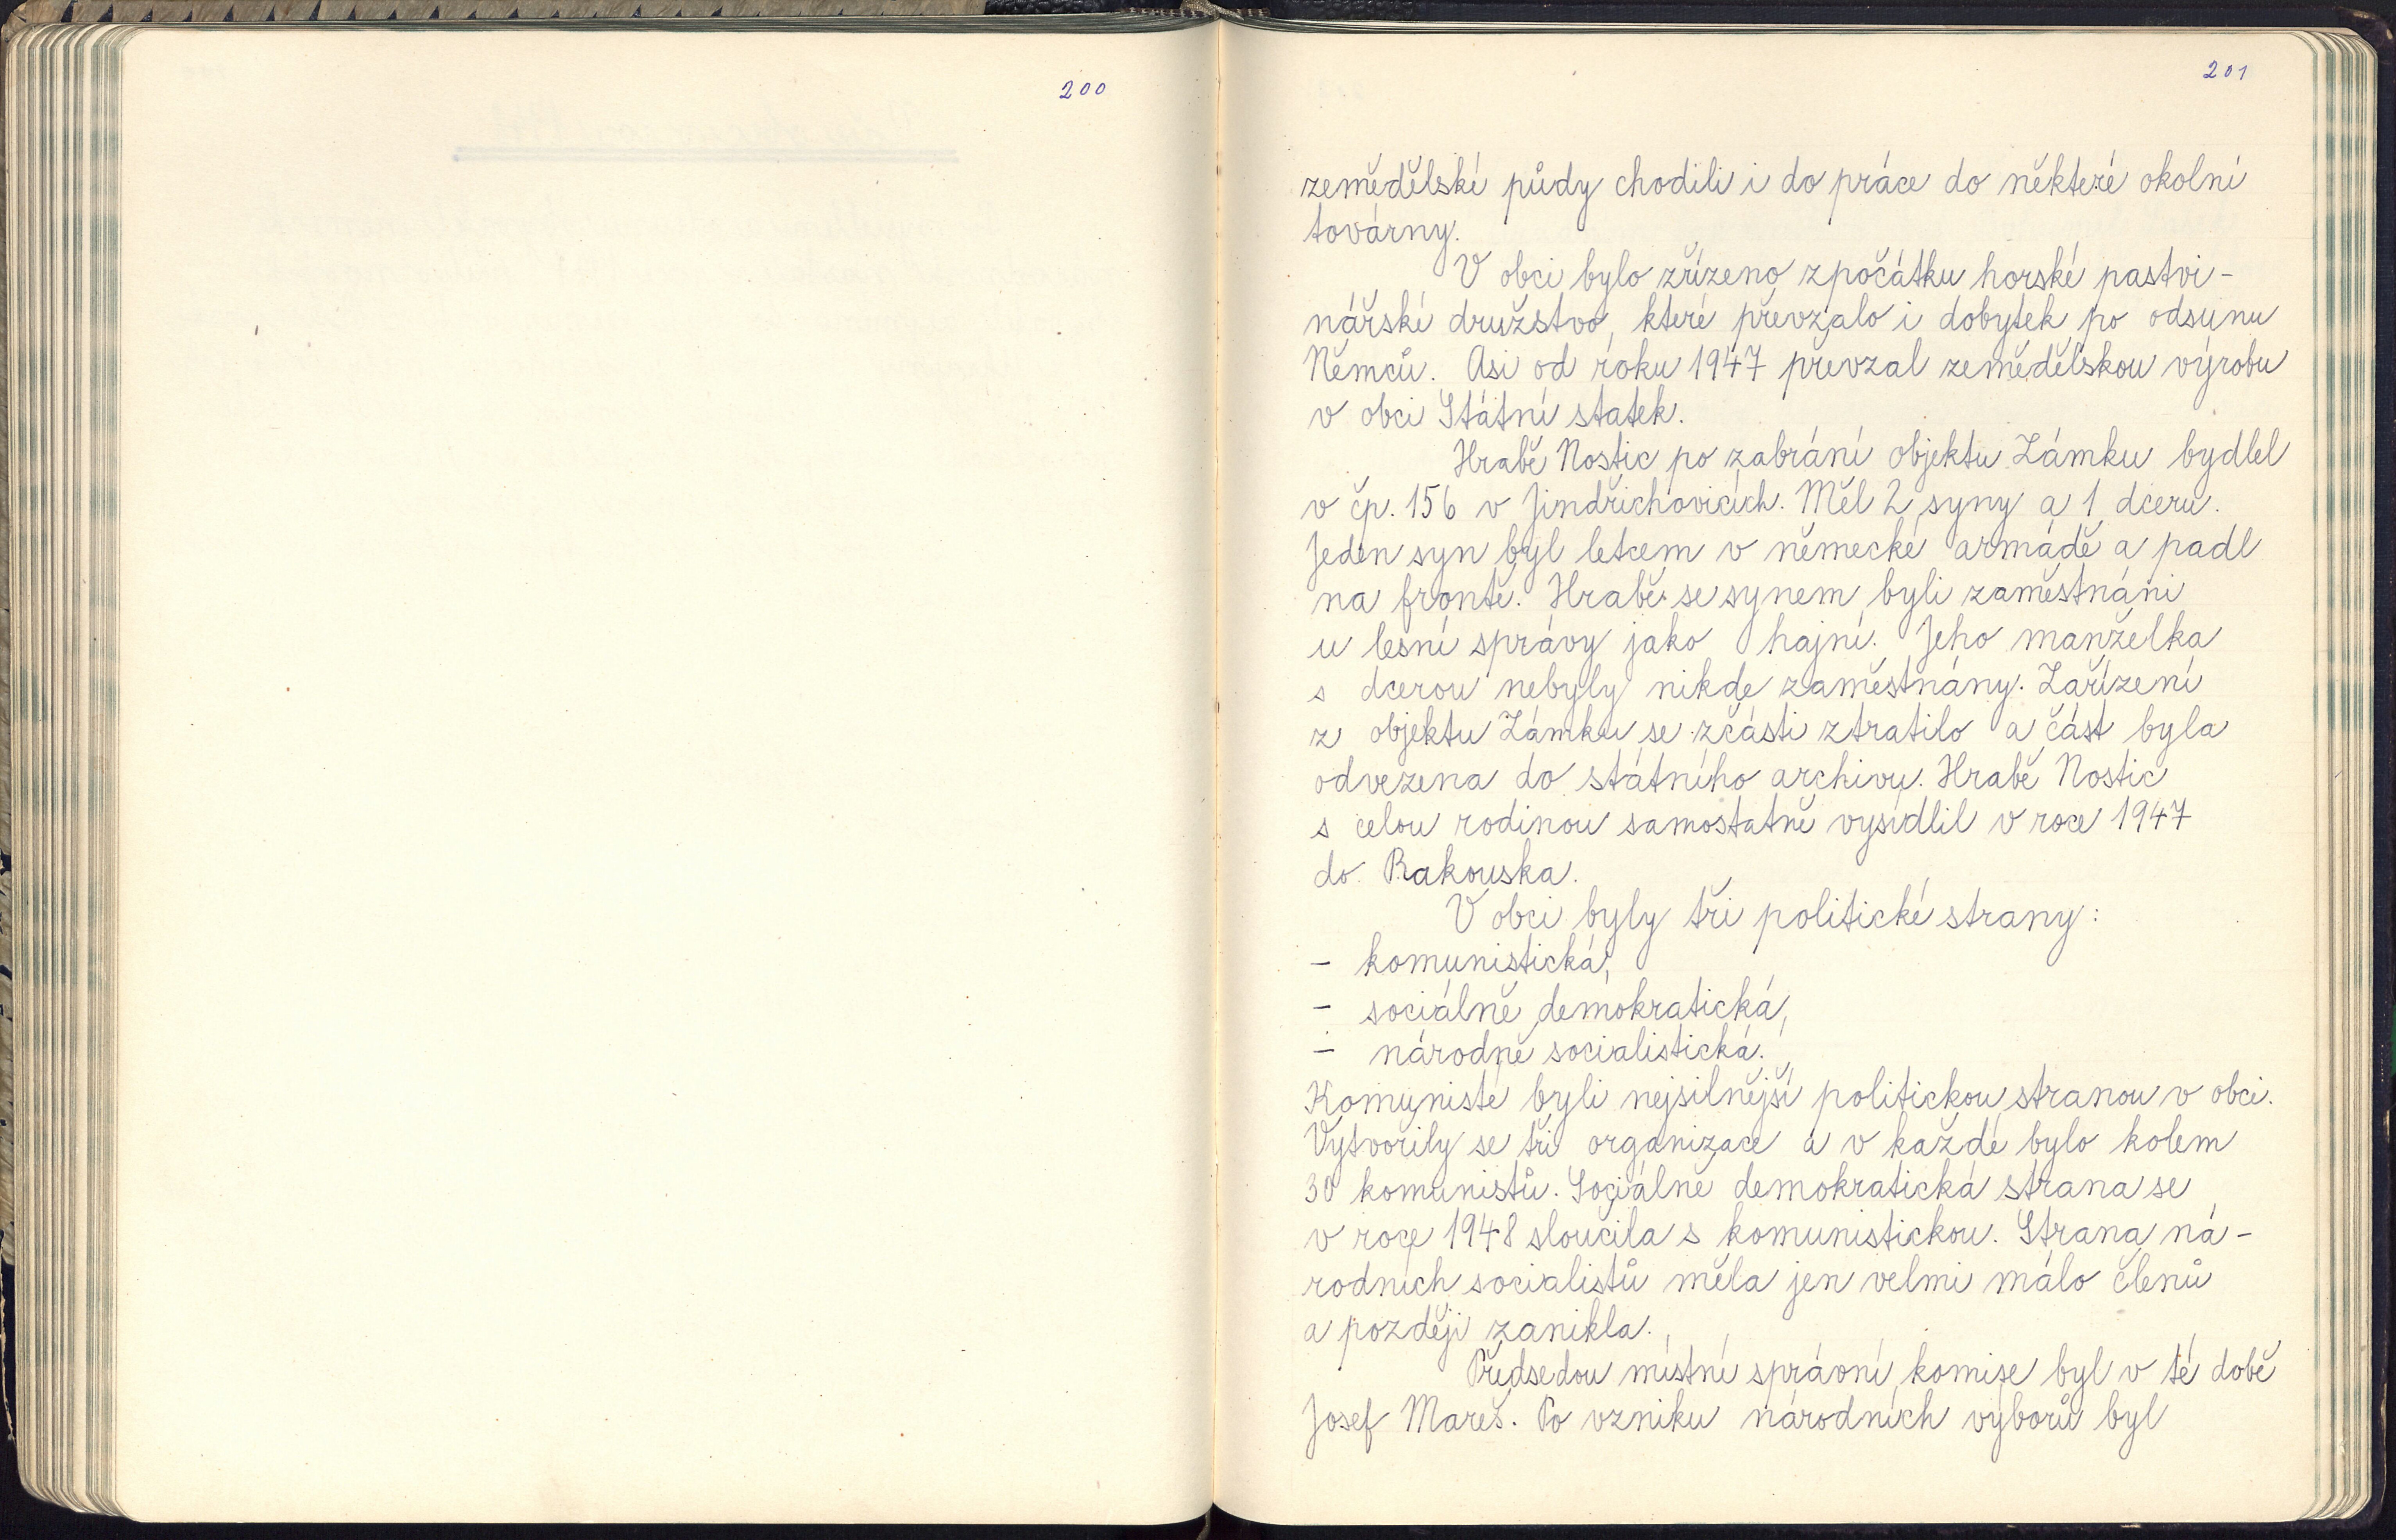 200
201
zemědělské půdy chodili i do práce do některé okolní
továrny.
V obci bylo zřízeno zpočátku horské pastvi-
nářské družstvo, které převzalo i dobytek po odsunu
Němců. Asi od roku 1947 převzal zemědělskou výrobu
v obci Státní statek.
Hrabě Nostic po zabrání objektu Zámku bydlel
v čp. 156 v Jindřichovicích. Měl 2 syny a 1 dceru.
Jeden syn byl letcem v německé armádě a padl
na frontě. Hrabě se synem byli zaměstnáni
u lesní správy jako hajní. Jeho manželka
s dcerou nebyly nikde zaměstnány. Zařízení
z objektu Zámku se zčásti ztratilo a část byla
odvezena do státního archivu. Hrabě Nostic
s celou rodinou samostatně vysídlil v roce 1947
do Rakouska.
V obci byly tři politické strany:
- komunistická,
- sociálně demokratická,
- národně socialistická.
Komunisté byli nejsilnější politickou stranou v obci.
Vytvořily se tři organizace a v každé bylo kolem
30 komunistů. Sociálně demokratická strana se
v roce 1948 sloučila s komunistickou. Strana ná-
rodních socialistů měla jen velmi málo členů
a později zanikla.
Předsedou místní správní komise byl v té době
Josef Mareš. Po vzniku národních výborů byl